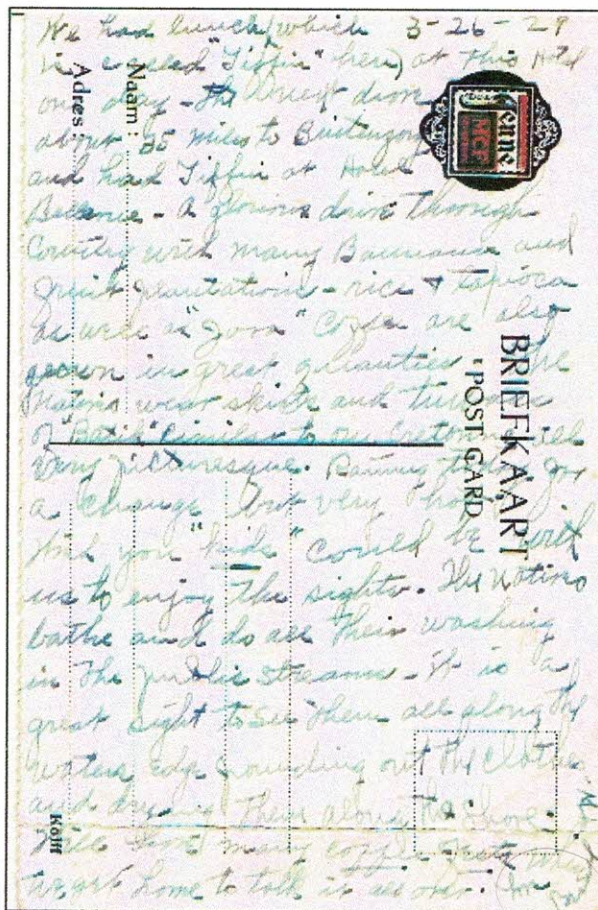 We had lunch (which 3-26-29
is called "Tiffin" here) at this Hotel
one day - the next drove
about 35 miles to Buitenzorg
and had Tiffin at Hotel
Bellevue - A glorious drive through
Country with many Bananas and
fruit plantations - rice & tapioca
as well as "Java" Coffee are also
grown in great quantities The
Natives wear skirts and
of "Batik" similar to our Cretonne all
very picturesque. Raining today for
a change but very hot
you "kids" could be with
us to enjoy the sights. The Natives
bathe and do all their washing
in the public streams - it is a
great sight to see them all along the
waters edge pounding out the clothes
and drying them along the shore.
Will have many cozy when
we get home to talk it all over.
Naam:
Adres:
BRIEFKAART
POST CARD
MCF
Kolff